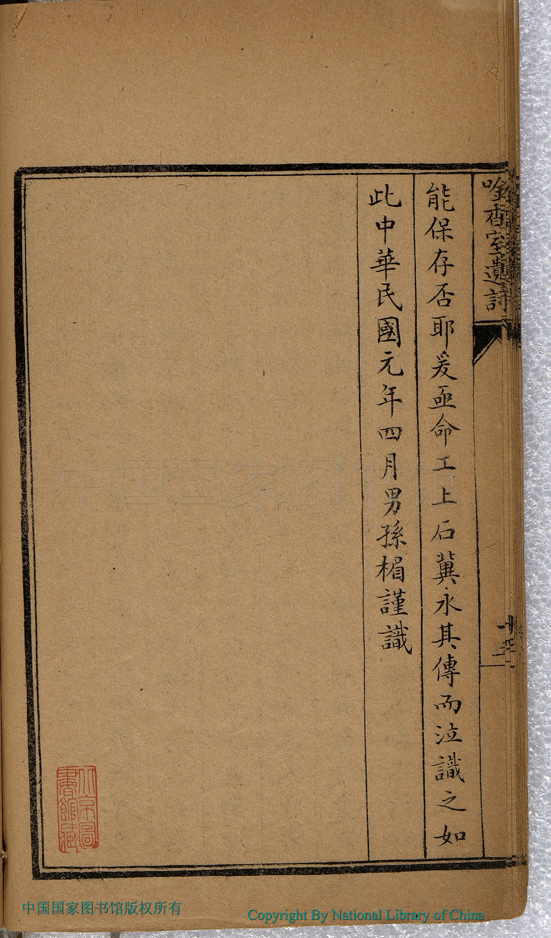 吟香室遺詩
能保存否耶爰亟命工上石冀永其傳而泣識之如
此中華民國元年四月男孫楣謹識
北京圖
書館藏
中国国家图
中国国家图书馆版权所有
Copyright By National Library of China